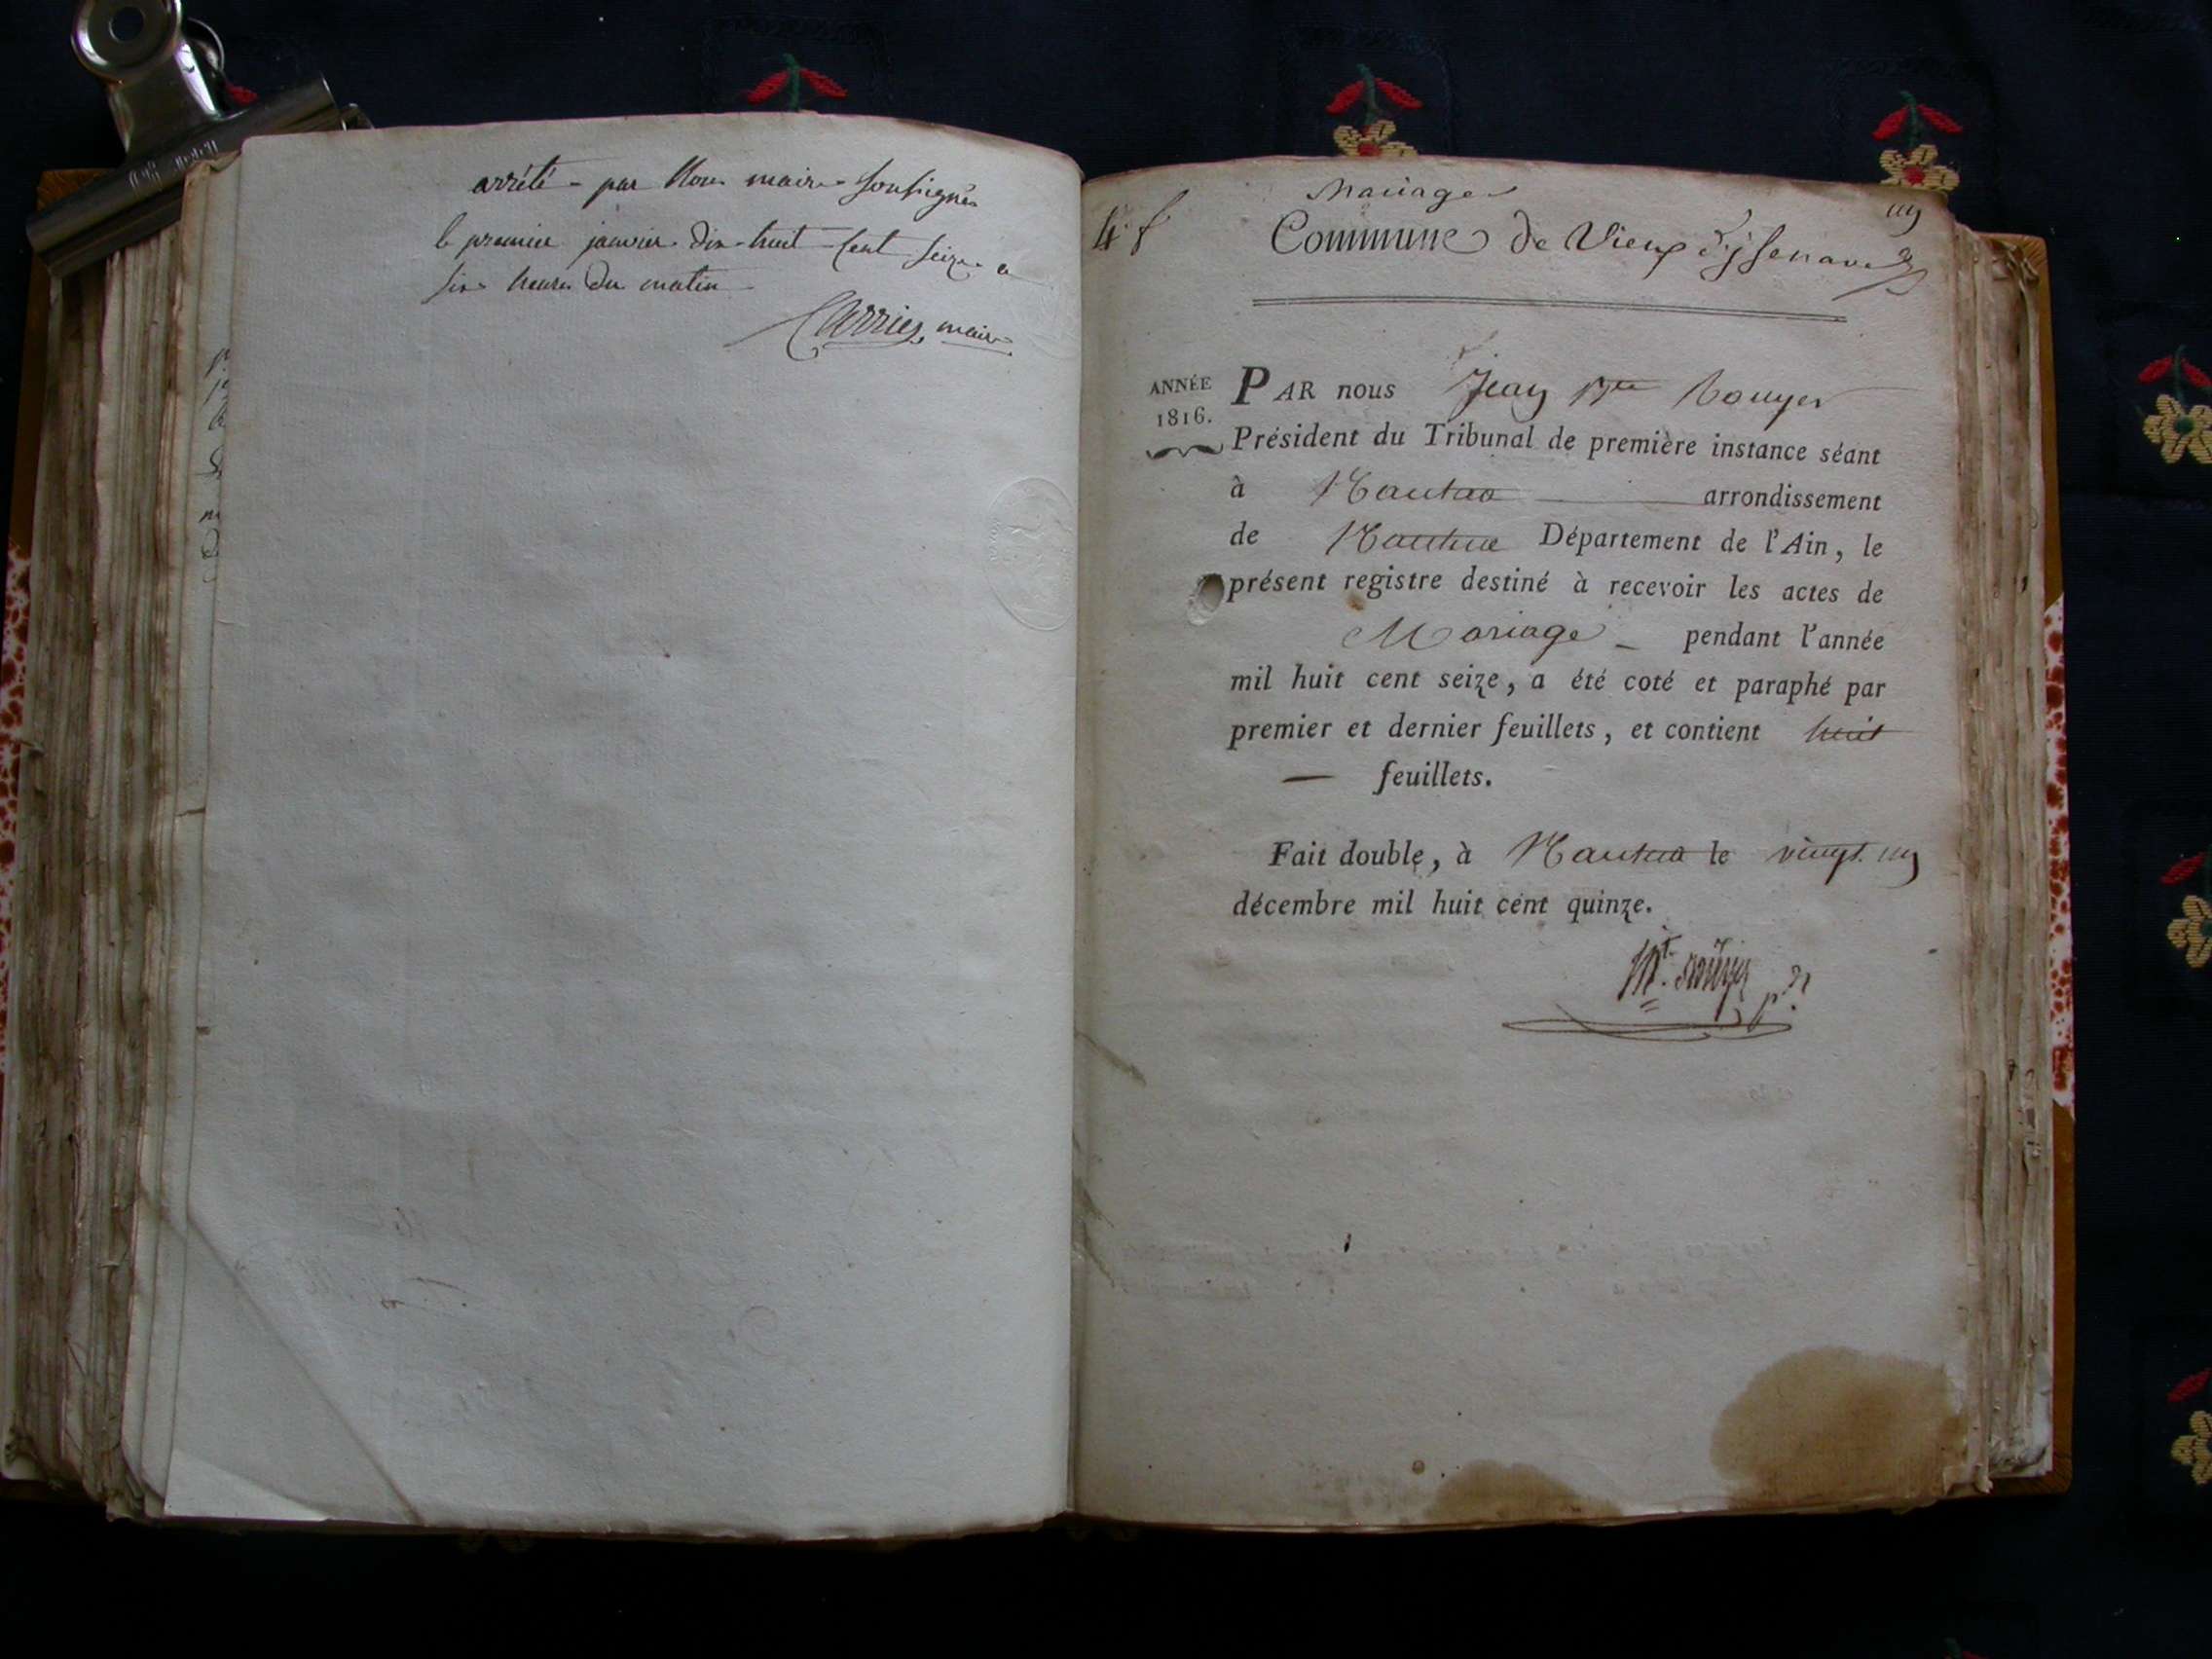 arrêté - par Nous maire soussigné
le premier janvier dix-huit Cent Seize a
six heures du matin
Carrier maire
Mariages
4. f
un
Commune de Vieux d'jsenave
ANNÉE
1816.
PAR nous Jean Bte Rouyer
Président du Tribunal de première instance séant
à Nantua arrondissement
de Nantua Département de l'Ain, le
présent registre destiné à recevoir les actes de
Mariage pendant l'année
mil huit cent seize, a été coté et paraphé par
premier et dernier feuillets, et contient huit
— feuillets.
Fait double, à Nantua le vingt un
décembre mil huit cent quinze.